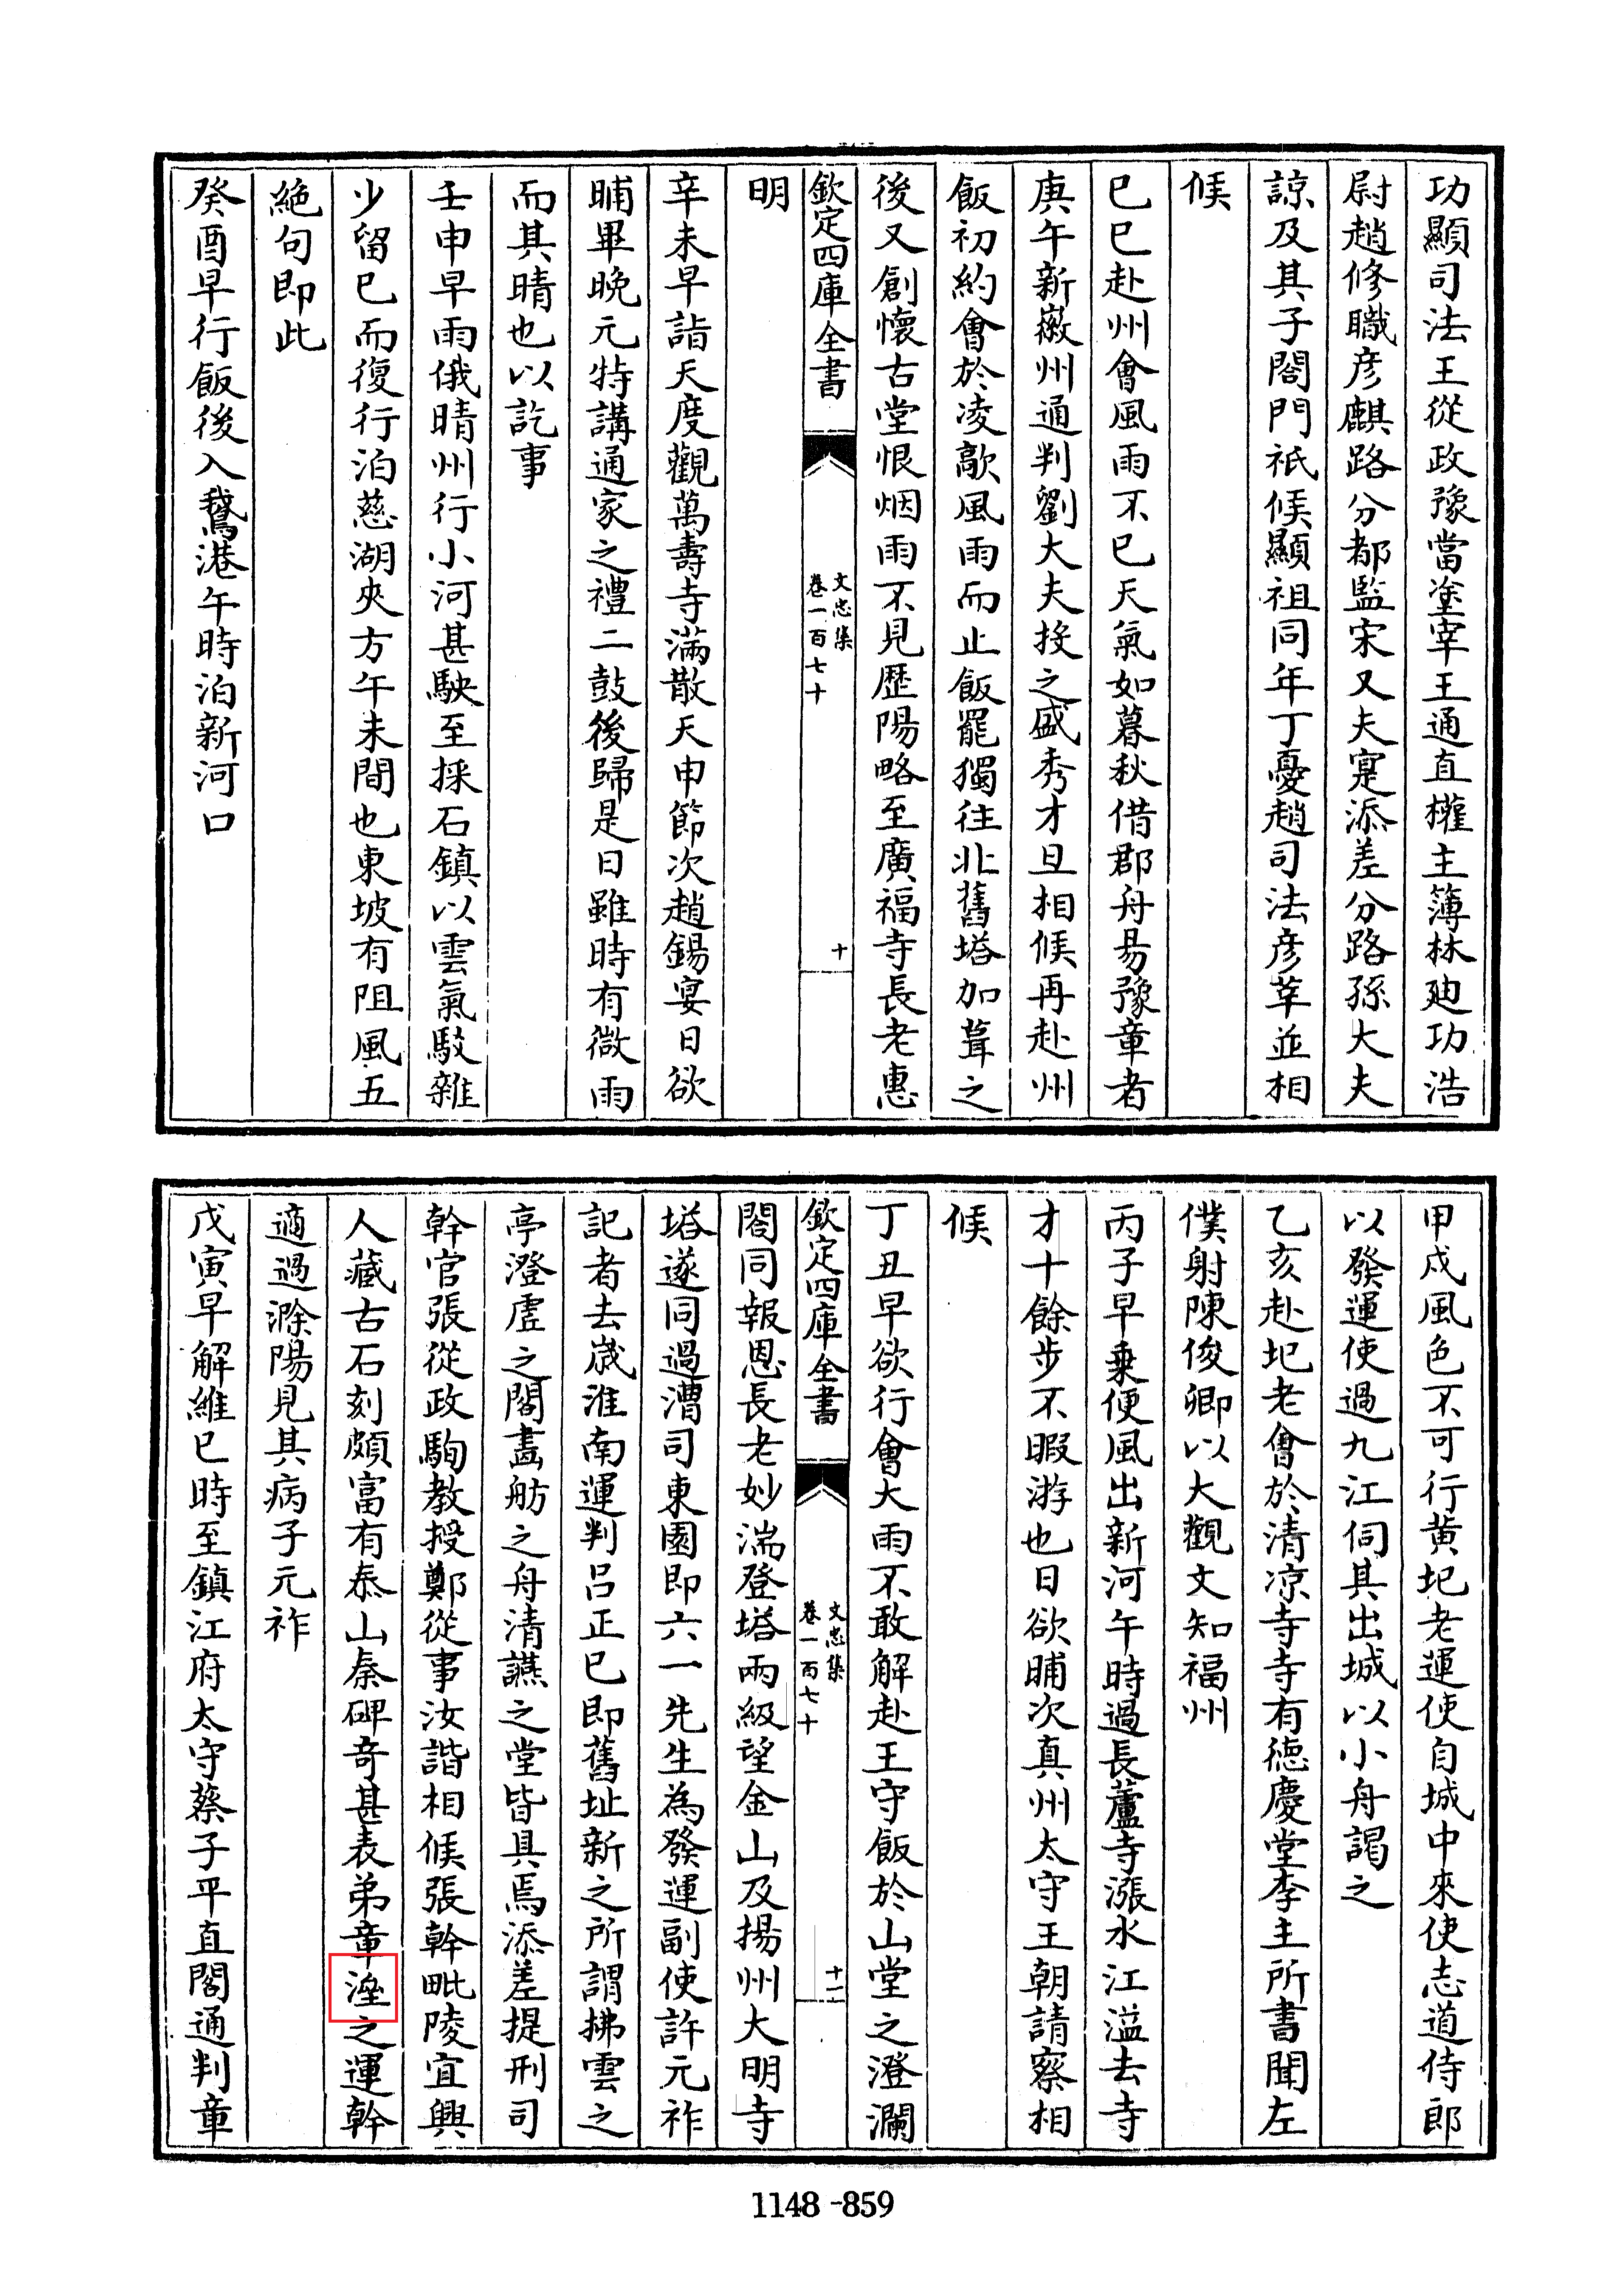 功顯司法王從政豫當塗宰王通直權主簿林廸功浩
尉趙修職彦麒路分都監宋又夫寔添差分路孫大夫
諒及其子閤門祇候顯祖同年丁憂趙司法彦莘並相
候
己巳赴州會風雨不已天氣如暮秋借郡舟易豫章者
庚午新徽州通判劉大夫授之盛秀才旦相候再赴州
飯初約會於凌歊風雨而止飯罷獨往北舊塔加葺之
後又創懷古堂恨烟雨不見歴陽略至廣福寺長老惠
欽定四庫全書
文忠集
卷一百七十
十
明
辛未早詣天度觀萬壽寺滿散天申節次趙錫宴日欲
晡畢晚元特講通家之禮二鼓後歸是日雖時有微雨
而其晴也以訖事
壬申早雨俄晴州行小河甚駛至採石鎮以雲氣駁雜
少留已而復行泊慈湖夾方午未間也東坡有阻風五
絶句即此
癸酉早行飯後入鵞港午時泊新河口
甲戌風色不可行黄圯老運使自城中來使志道侍郎
以發運使過九江伺其出城以小舟謁之
乙亥赴圯老會於清凉寺寺有德慶堂李主所書聞左
僕射陳俊卿以大觀文知福州
丙子早乗便風出新河午時過長蘆寺漲水江溢去寺
才十餘步不暇游也日欲晡次真州太守王朝請察相
候
丁丑早欲行會大雨不敢解赴王守飯於山堂之澄瀾
欽定四庫全書
文忠集
卷一百七十
十一
閣同報恩長老妙湍登塔兩級望金山及揚州大明寺
塔遂同過漕司東園即六一先生為發運副使許元祚
記者去嵗淮南運判吕正已即舊址新之所謂拂雲之
亭澄虚之閣畵舫之舟清讌之堂皆具焉添差提刑司
幹官張從政駒教授鄭從事汝諧相候張幹毗陵宜興
人藏古石刻頗富有泰山秦碑奇甚表弟章溼之運幹
適過滁陽見其病子元祚
戊寅早解維巳時至鎮江府太守蔡子平直閣通判章
1148-859